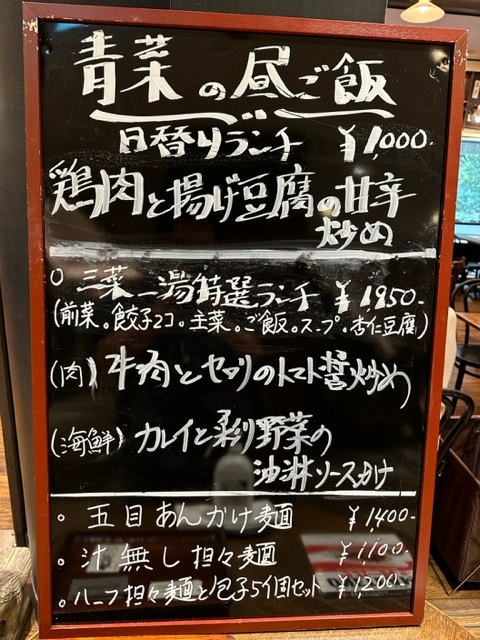 青菜の昼ご飯
日替りランチ ¥1,000-
鶏肉と揚げ豆腐の甘辛
炒め
○ 三菜一湯特選ランチ ¥1,850-
(前菜。餃子2コ。主菜。ご飯。スープ。杏仁豆腐)
(肉) 牛肉とセロリのトマト醤炒め
(海鮮) カレイと彩り野菜の
油淋ソースかけ
。五目あんかけ麺 ¥1,400-
。汁無し担々麺 ¥1,100-
。ハーフ担々麺と包子5個セット ¥1,200-